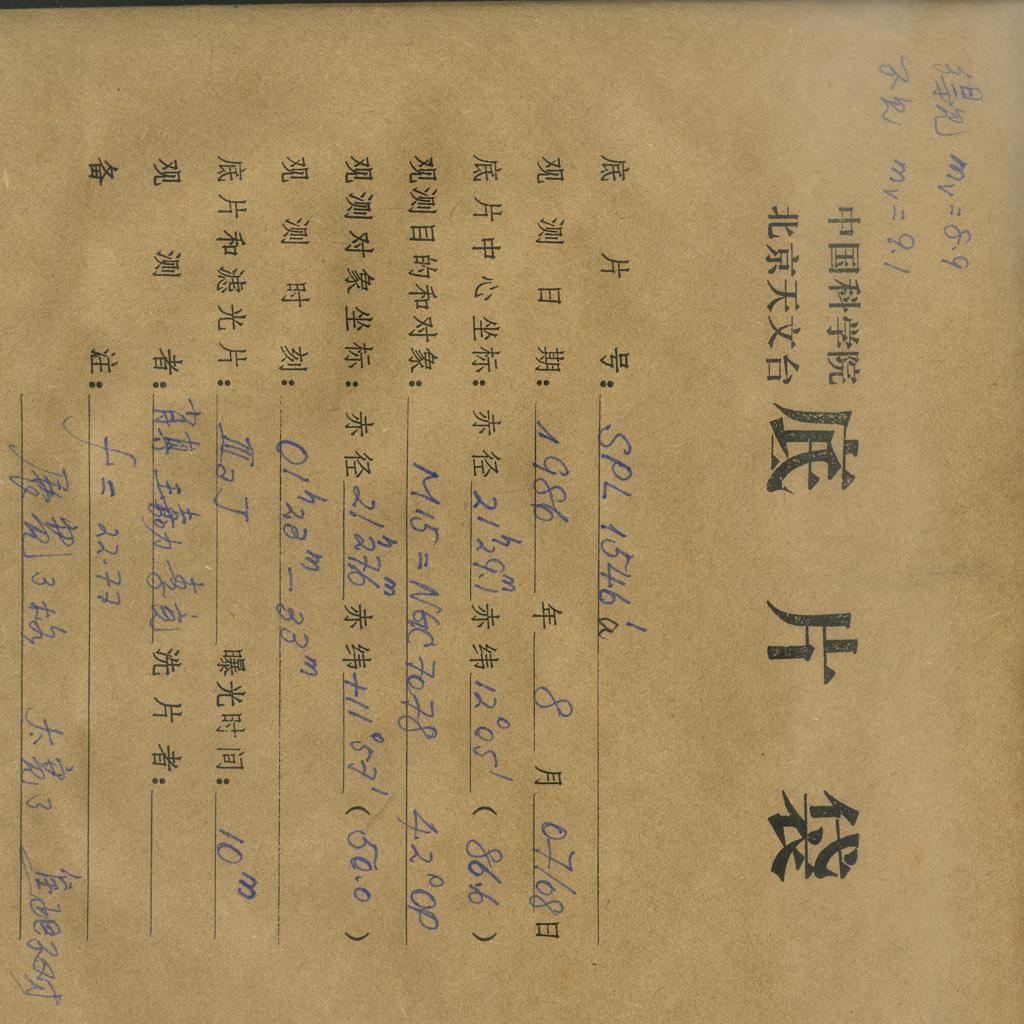 得见 mv=8.9
不见 mv=9.1
中国科学院
北京天文台
底片袋
底片号: SPL 1546'a
观测日期: 1986年8月07/08日
底片中心坐标: 赤径21ʰ29.1ᵐ赤纬12°05′(86.6)
观测目的和对象: M15=NGC7078 42°OP
观测对象坐标: 赤径21ʰ27.6ᵐ赤纬+11°57′(50.0)
观测时刻: 01ʰ23ᵐ—33ᵐ
底片和滤光片: IIIaJ 曝光时间: 10ᵐ
观测者: 洗片者:
备注: f=22.77
3 太宽3